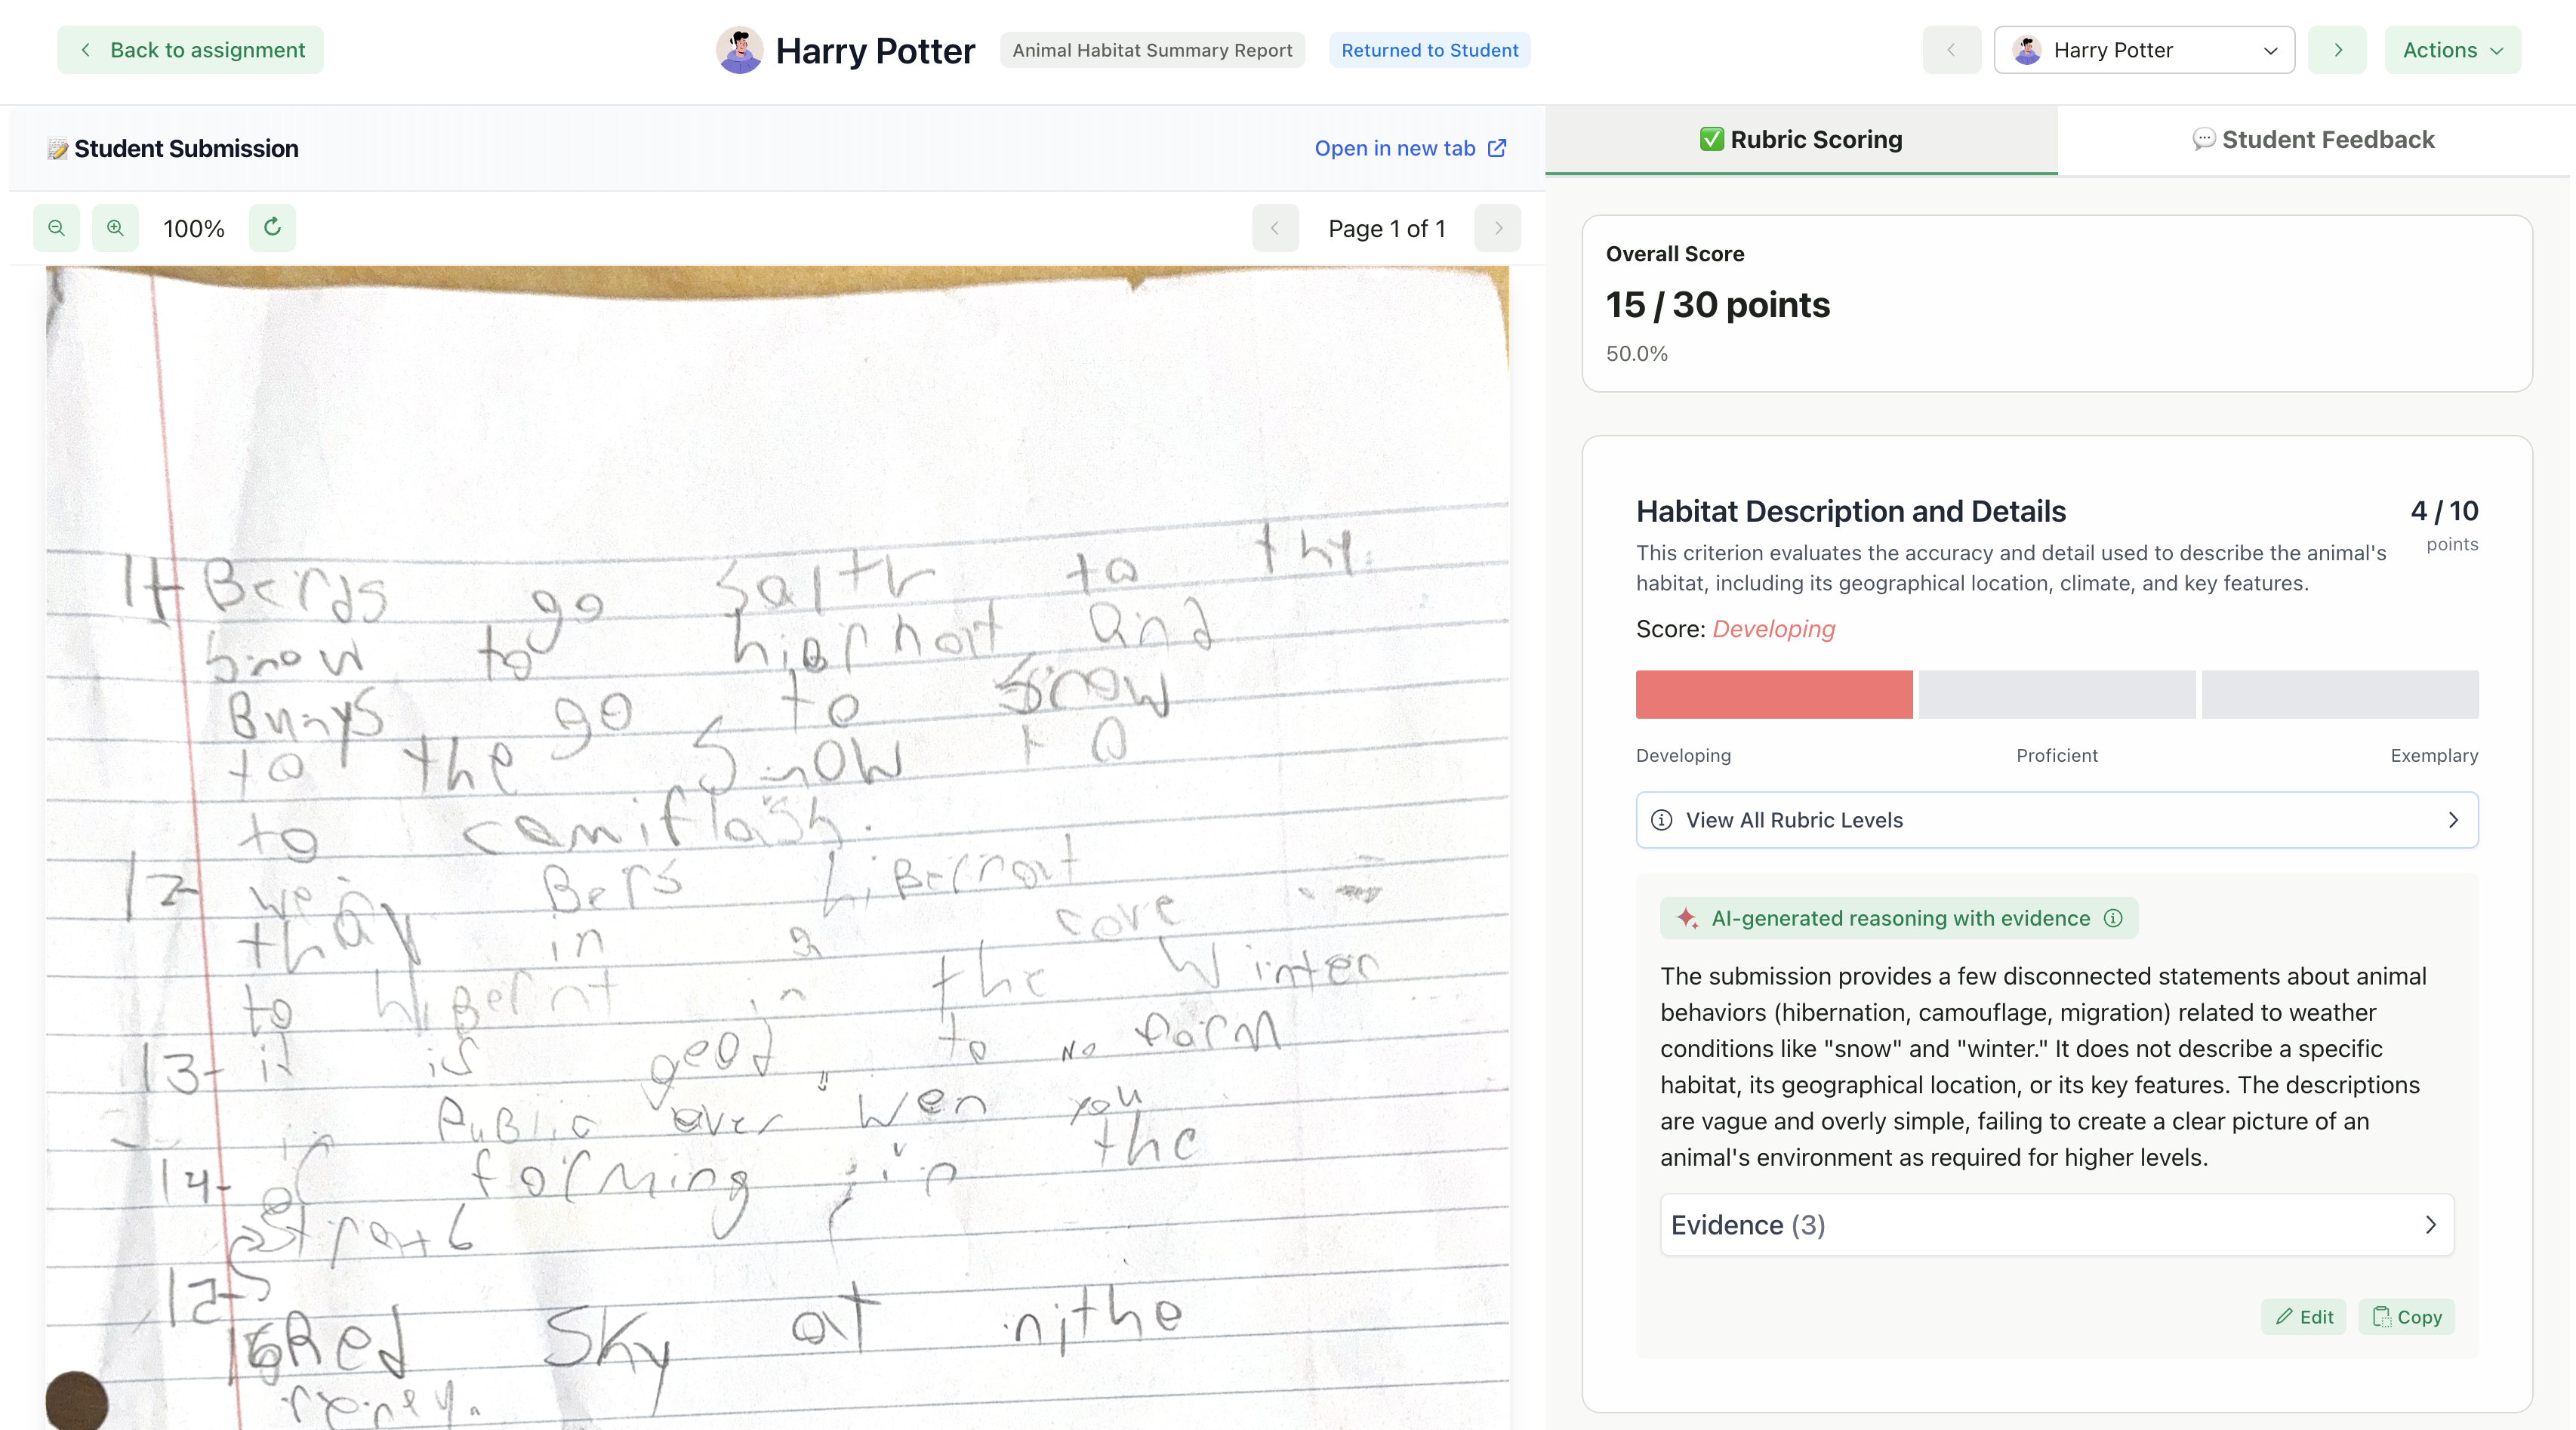 Back to assignment
Harry Potter
Animal Habitat Summary Report
Returned to Student
Harry Potter
Actions
Student Submission
Open in new tab
100%
Page 1 of 1
11 Berds go Salth to thy.
Snow to hibrnort and
Bunnys go to Snow
to the Snow to
to camiflash.
12- we Bers hiberrnat
thay in a cave
to hibernt in the Winter
13- it is geod to No farm
in Public ever wen you
14- forming in the
15-
16 Red Sky at nithe
Rubric Scoring
Student Feedback
Overall Score
15 / 30 points
50.0%
Habitat Description and Details
4 / 10
points
This criterion evaluates the accuracy and detail used to describe the animal's
habitat, including its geographical location, climate, and key features.
Score: Developing
Developing
Proficient
Exemplary
View All Rubric Levels
AI-generated reasoning with evidence
The submission provides a few disconnected statements about animal
behaviors (hibernation, camouflage, migration) related to weather
conditions like "snow" and "winter." It does not describe a specific
habitat, its geographical location, or its key features. The descriptions
are vague and overly simple, failing to create a clear picture of an
animal's environment as required for higher levels.
Evidence (3)
Edit
Copy